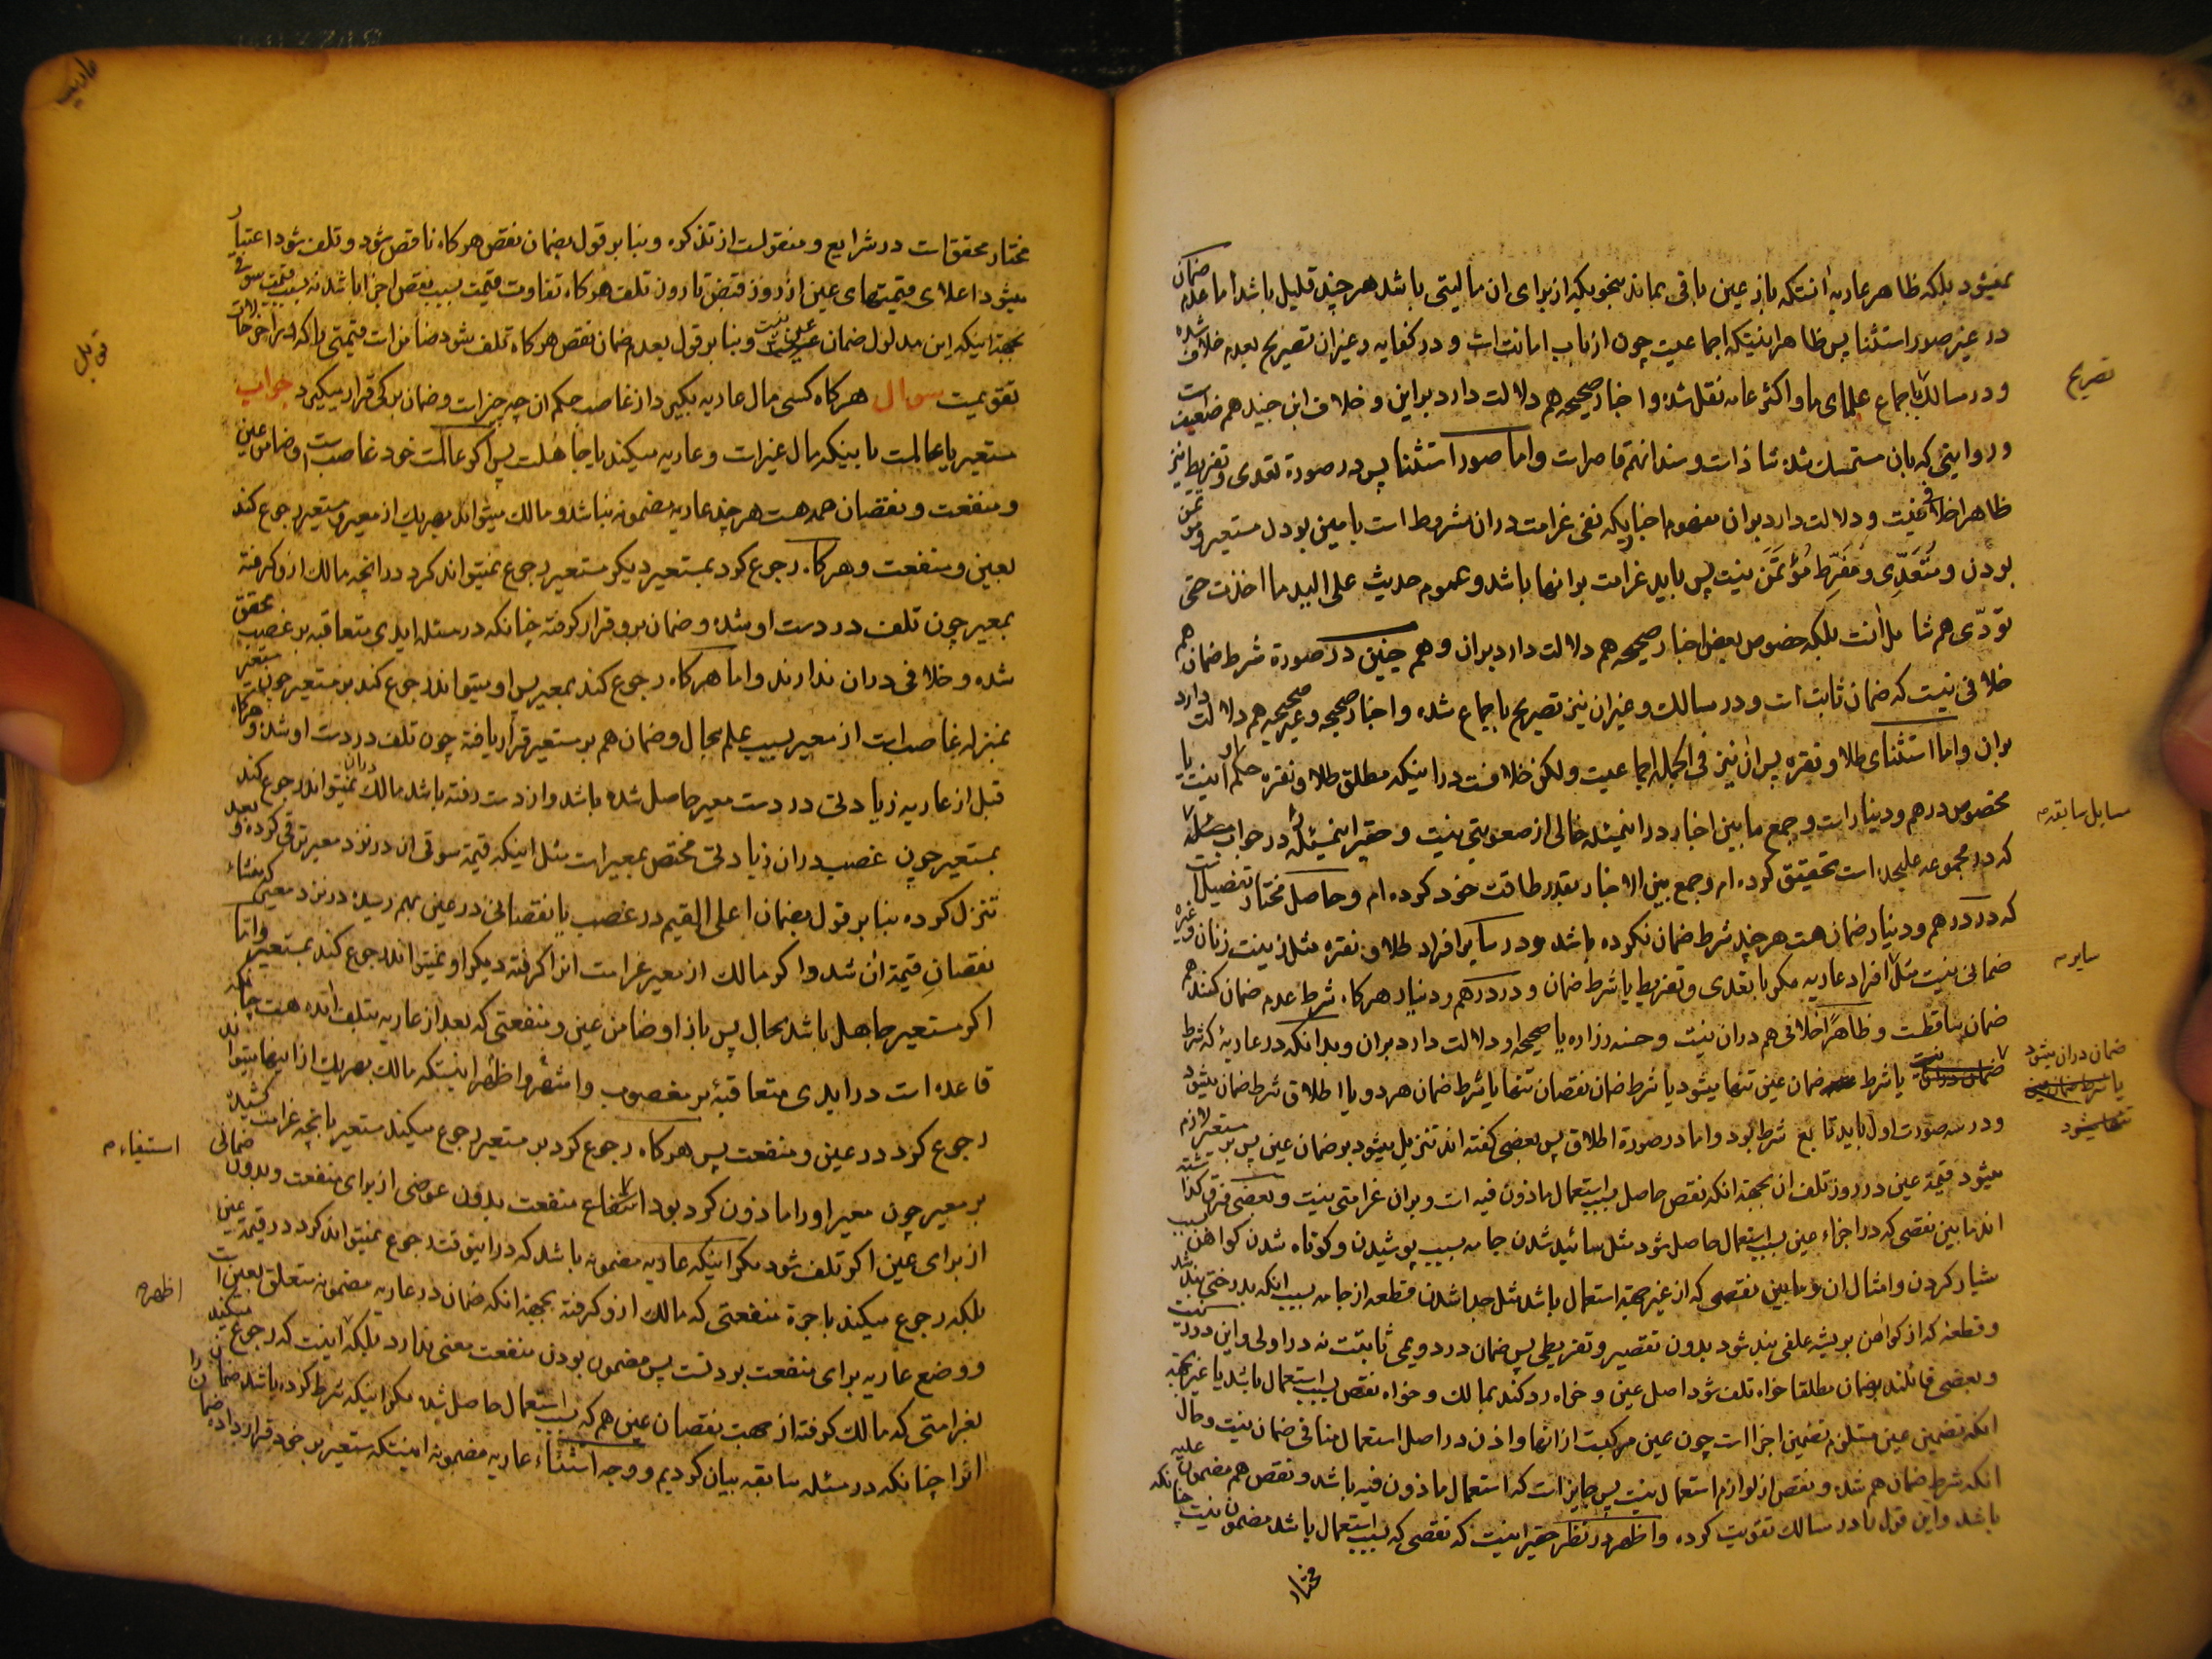 نمیشود بلکه ظاهر عاریه آنستکه باز عین باقی بماند بنحویکه از برای ان مالیتی باشد هر چند قلیل باشد اما عدم ضمان
در غیر صور استثنا پس ظاهر اینستکه اجماعیست چون از باب امانت است و در کفایه و غیر ان تصریح بعدم خلاف شده
و در مسالک باجماع علمای ما و اکثر عامه نقل شده و اخبار صحیحه هم دلالت دارد بر این و خلاف ابن جنید هم ضعیف است
و روایتی که بان متمسک شده شاذ است و سندا نهم قاصر است و اما صور استثنا پس در صورة تعدی و تفریط نیز
ظاهرا خلافی نیست و دلالت دارد بر ان مفهوم اخباریکه نفی غرامت دران مشروط است بامین بودن مستعیر و مؤتمن
بودن و متعدّی و مفرّط مؤتمن نیست پس باید غرامت بر انها باشد و عموم حدیث علی الید ما اخذت حتی
تؤدّی هم شامل آنست بلکه خصوص بعض اخبار صحیحه هم دلالت دارد بران و هم چنین در صورة شرط ضمان هم
خلافی نیست که ضمان ثابت است و در مسالک و غیر ان نیز تصریح باجماع شده و اخبار صحیحه و غیر صحیحه هم دلالت دارد
بران و اما استثنای طلا و نقره پس ان نیز فی الجمله اجماعیست ولکن خلافست در اینکه مطلق طلا و نقره حکم او اینست یا
مخصوص درهم و دینار است و جمع مابین اخبار در اینمسئله خالی از صعوبتی نیست و حقیر اینمسئله را در جواب مسئله
که در مجموعه علیحده است تحقیق کرده ام و جمع بین الاخبار بقدر طاقت خود کرده ام و حاصل مختار تفصیل است
که در درهم و دینار ضمان هست هر چند شرط ضمان نکرده باشد و در سایر افراد طلا و نقره مثل زینت زنان و غیره
ضمانی نیست مثل افراد عاریه مگر با تعدی و تفریط یا شرط ضمان و در درهم و دینار هرگاه شرط عدم ضمان کنند هم
ضمان ساقطست و ظاهرا خلافی هم دران نیست و حسنه زراره یا صحیحه او دلالت دارد بران و بدانکه در عاریه که شرط
یا شرط ضمان عین تنها میشود یا شرط ضمان نقصان تنها یا شرط ضمان هر دو یا اطلاق شرط ضمان میشود
و در سه صورت اول باید تابع شرط بود و اما در صورة اطلاق پس بعضی گفته اند تنزیل میشود بر ضمان عین پس بر مستعیر لازم
میشود قیمة عین در روز تلف ان بجهة انکه نقص حاصل بسبب استعمال ماذون فیه است و بران غرامتی نیست و بعضی فرق گذاشته
اند مابین نقصی که در اجزاء عین بسبب استعمال حاصل شود مثل سائیده شدن جامه بسبب پوشیدن و کوتاه شدن گواهن بسبب
شیار کردن و امثال ان و مابین نقصی که از غیر جهة استعمال باشد مثل جدا شدن قطعه از جامه بسبب انکه بدرختی بند شد
و قطعه که از گواهن بریشه علفی بند شود بدون تقصیر و تفریطی پس ضمان در دویمی ثابتست نه در اولی و این
و بعضی قائلند بضمان مطلقا خواه تلف شود اصل عین و خواه رد کند بمالک و خواه نقص بسبب استعمال باشد یا غیر بجهة
انکه تضمین عین مستلزم تضمین اجزا است چون عین مرکبست از انها و اذن در اصل استعمال منافی ضمان نیست و حال
انکه شرط ضمان هم شده و نقص از لوازم استعمال نیست پس جایز است که استعمال ماذون فیه باشد و نقص هم مضمون علیه
باشد و این قول را در مسالک تقویت کرده و اظهر در نظر حقیر اینست که نقصی که بسبب استعمال باشد مضمون نیست چنانکه
مختار
تصریح
مسایل سابقه
سایر
ضمان دران میشود
مختار محقق است در شرایع و منقولست از تذکره و بنا بر قول بضمان نقص هرگاه ناقص شود و تلف شود اعتبار
میشود اعلای قیمتهای عین از روز قبض تا روز تلف هرگاه تفاوت قیمت بسبب نقص اجزا باشد نه بسبب قیمت سوقی
بجهة اینکه این مدلول ضمان عین نیست و بنا بر قول بعدم ضمان نقص هرگاه تلف شود ضامن است قیمتی را که
تقویمست سوال هرگاه کسی مال عاریه بگیرد از غاصب حکم ان چه چیز است و ضمان بر کی قرار میگیرد جواب
مستعیر یا عالمست باینکه مال غیر است و عاریه میکند یا جاهلست پس اگر عالمست خود غاصب است و ضامن عین
و منفعت و نقصان همه هست هر چند عاریه مضمونه نباشد و مالک میتواند بهر یک از معیر و مستعیر رجوع کند
بعین و منفعت و هرگاه رجوع کرد بمستعیر دیگر مستعیر رجوع نمیتواند کرد در انچه مالک از او گرفته
بمعیر چون تلف در دست او شده و ضمان بر و قرار گرفته چنانکه در مسئله ایدی متعاقبه بر غصب محقق
شده و خلافی دران ندارند و اما هرگاه رجوع کند بمعیر پس او میتواند رجوع کند بر مستعیر چون مستعیر
بمنزله غاصب است از معیر بسبب علم بحال و ضمان هم بر مستعیر قرار یافته چون تلف در دست او شده و هرگاه
قبل از عاریه زیادتی در دست معیر حاصل شده باشد و از دست رفته باشد مالک نمیتواند دران رجوع کند
بمستعیر چون غصب دران زیادتی مختص بمعیر است مثل اینکه قیمة سوقی ان در نزد معیر ترقی کرده و بعد
تنزل کرده بنا بر قول بضمان اعلی القیم در غصب یا نقصانی در عین بهم رسیده در نزد معیر که منشاء
نقصان قیمة ان شد و اگر مالک از معیر غرامت انرا گرفته دیگر او نمیتواند رجوع کند بمستعیر و اما
اگر مستعیر جاهل باشد بحال پس باز او ضامن عین و منفعتی که بعد از عاریه تلف شده هست چنانکه
قاعده است در ایدی متعاقبه بر مغصوب و اشهر و اظهر اینستکه مالک بهر یک از اینها میتواند
رجوع کرد در عین و منفعت پس هرگاه رجوع کرد بر مستعیر رجوع میکند مستعیر بانچه غرامت کشیده
بر معیر چون معیر او را ماذون کرد بود منفعت بدون عوضی از برای منفعت و بدون ضمانی
از برای عین اگر تلف شود مگر اینکه عاریه مضمونه باشد که در اینوقت رجوع نمیتواند کرد در قیمة عین
بلکه رجوع میکند باجرة منفعتی که مالک از او گرفته بجهة انکه ضمان در عاریه مضمونه متعلق بعین است
و وضع عاریه برای منفعت بردنست پس مضمون بودن منفعت معنی ندارد بلکه اینست که رجوع میکند
بغرامتی که مالک گرفته از جهت نقصان عین هم که بسبب استعمال حاصل شده مگر اینکه شرط کرده باشد ضمان
انرا چنانکه در مسئله سابقه بیان کردیم و وجه استثناء عاریه مضمونه اینستکه مستعیر بر خود قرار داده ضمان را
استیفاء
اظهر